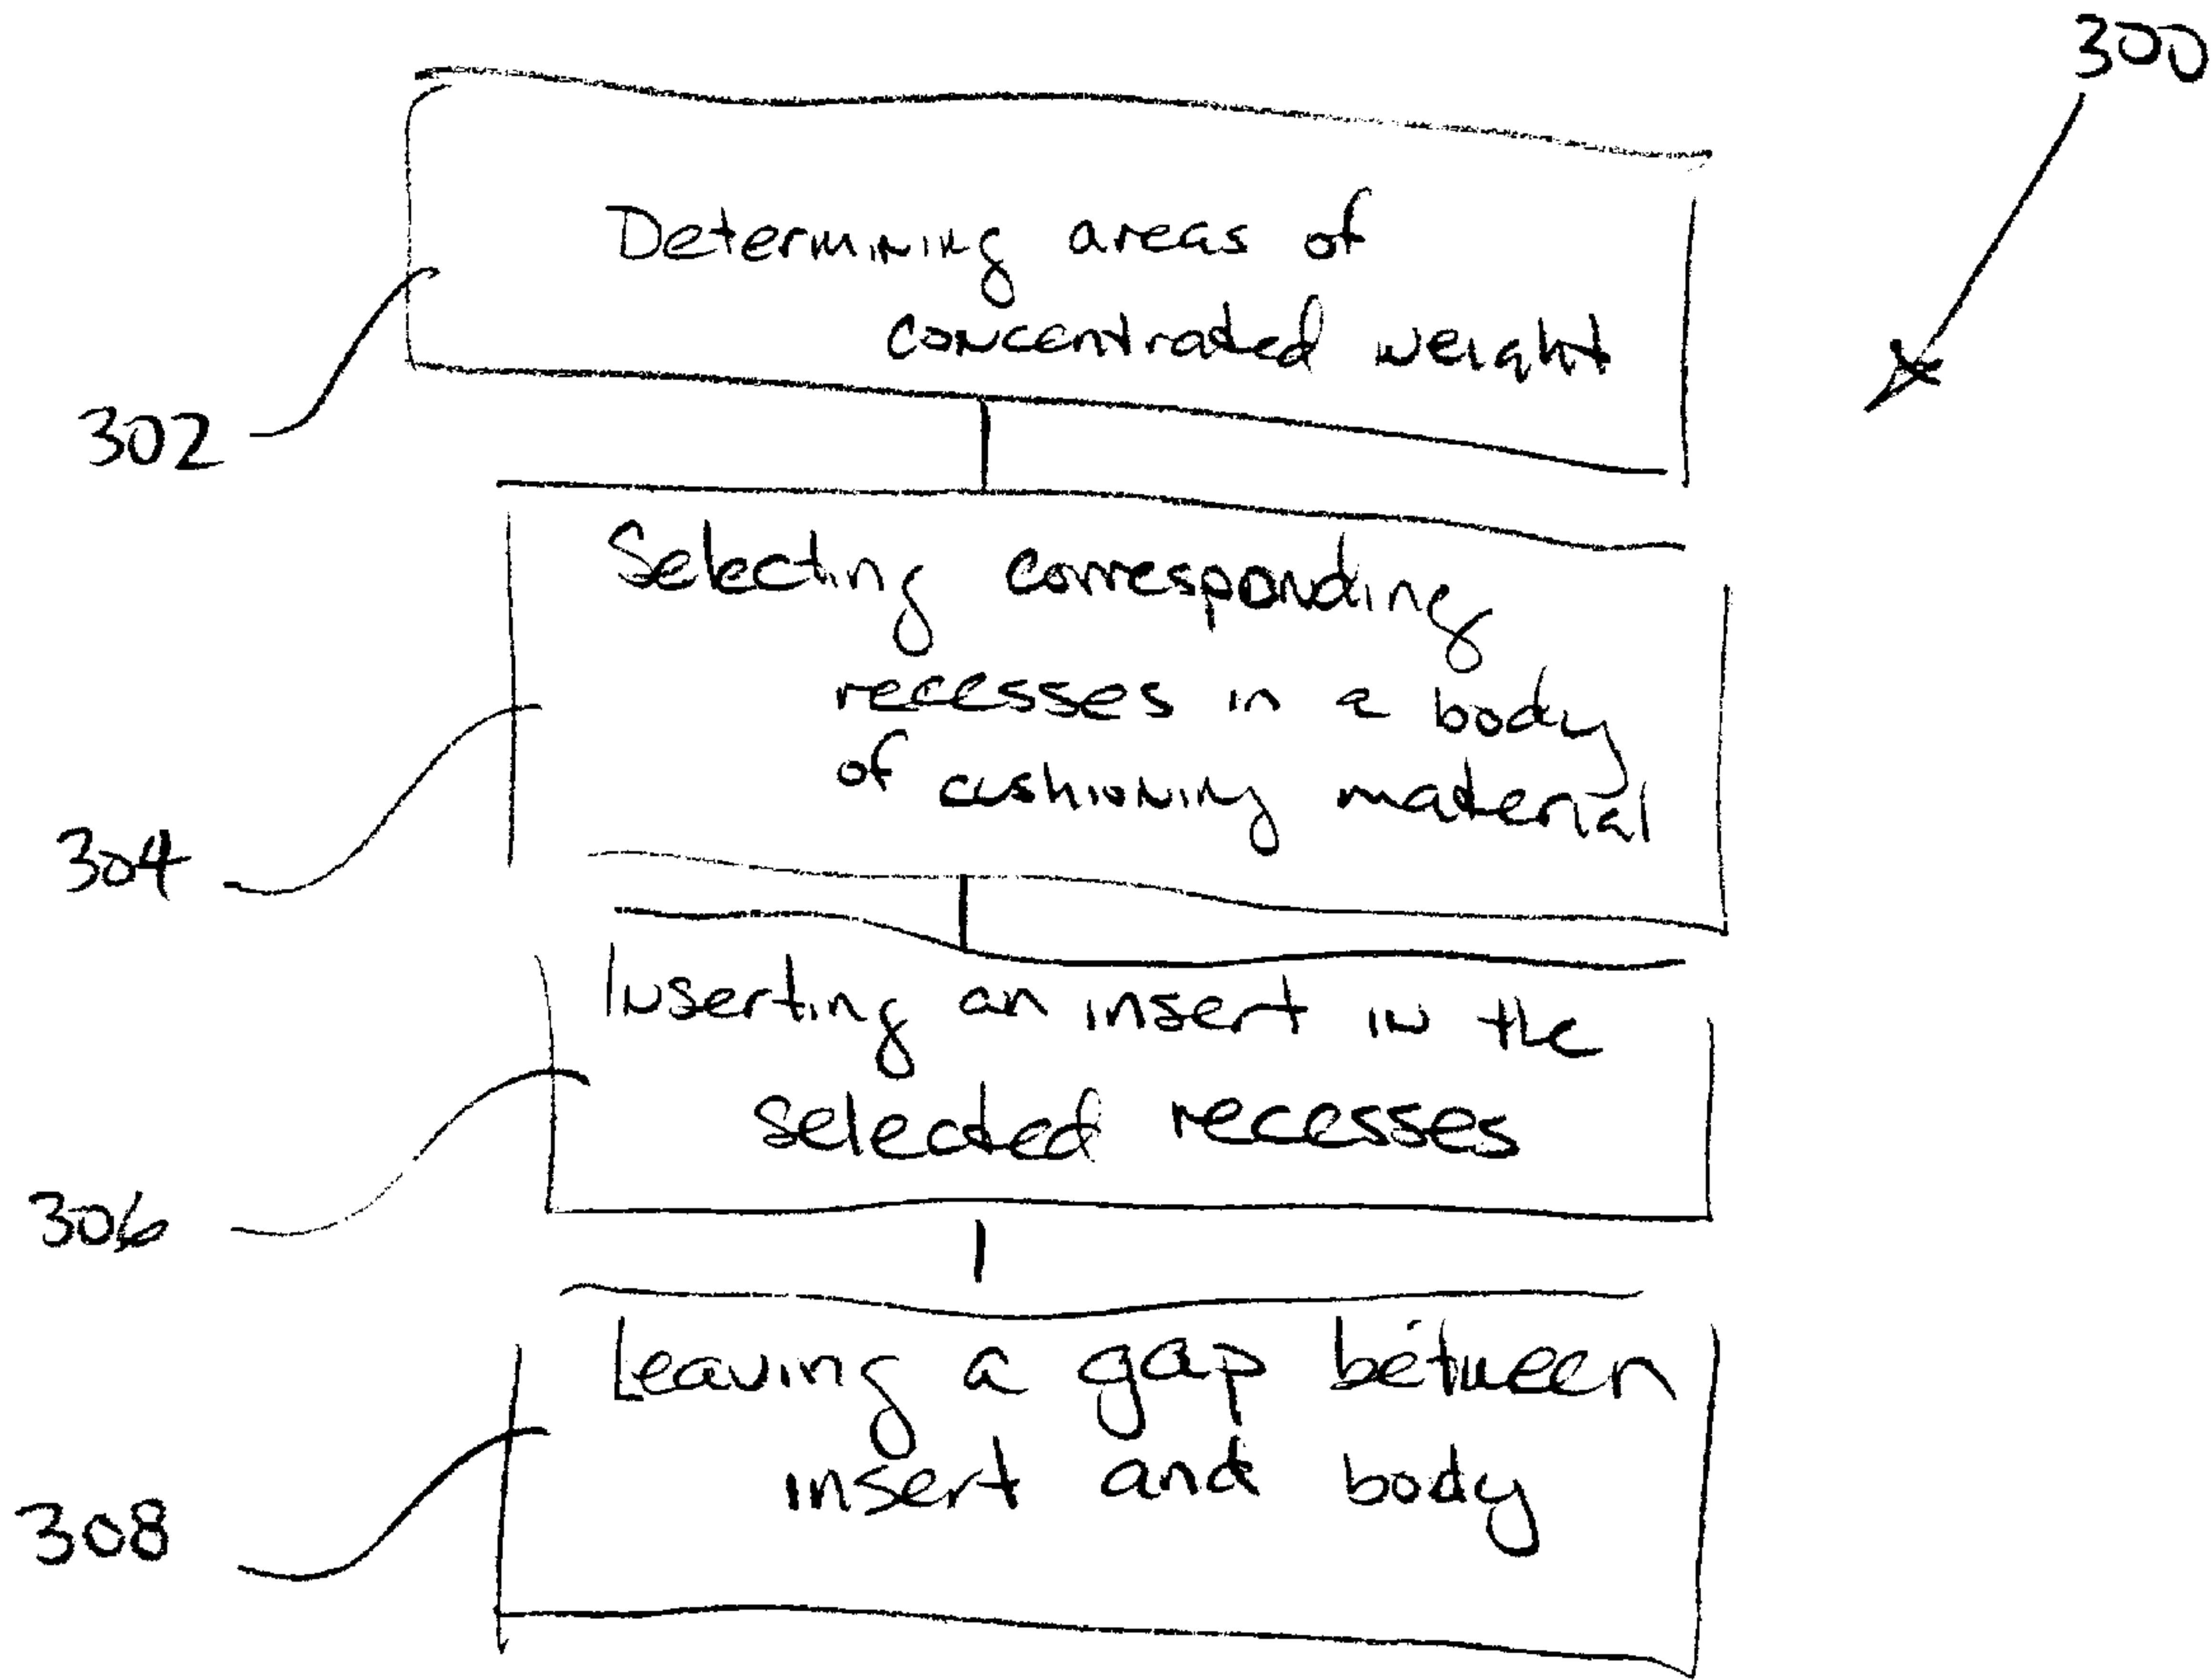 300
Determining areas of
concentrated weight
302
Selecting corresponding
recesses in a body
of cushioning material
304
Inserting an insert in the
selected recesses
306
Leaving a gap between
insert and body
308